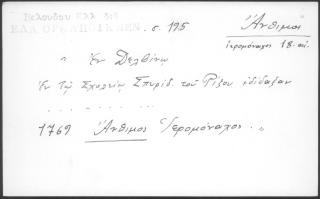 Βελουδου Ελλ 5:3
ΕΛΛ ΟΡΘ ΑΠΟΙΚ ΒΕΝ. σ. 195 Ἄνθιμος
ἱερομόναχος 18. αἰ.
" Ἐν Δελβίνῳ
Ἐν τῷ Σχολείῳ Σπυρίδ. τοῦ Ρίζου ἐδίδαξαν
. . . . . . . . . . . .
1769 Ἄνθιμος Ἱερομόναχος. "